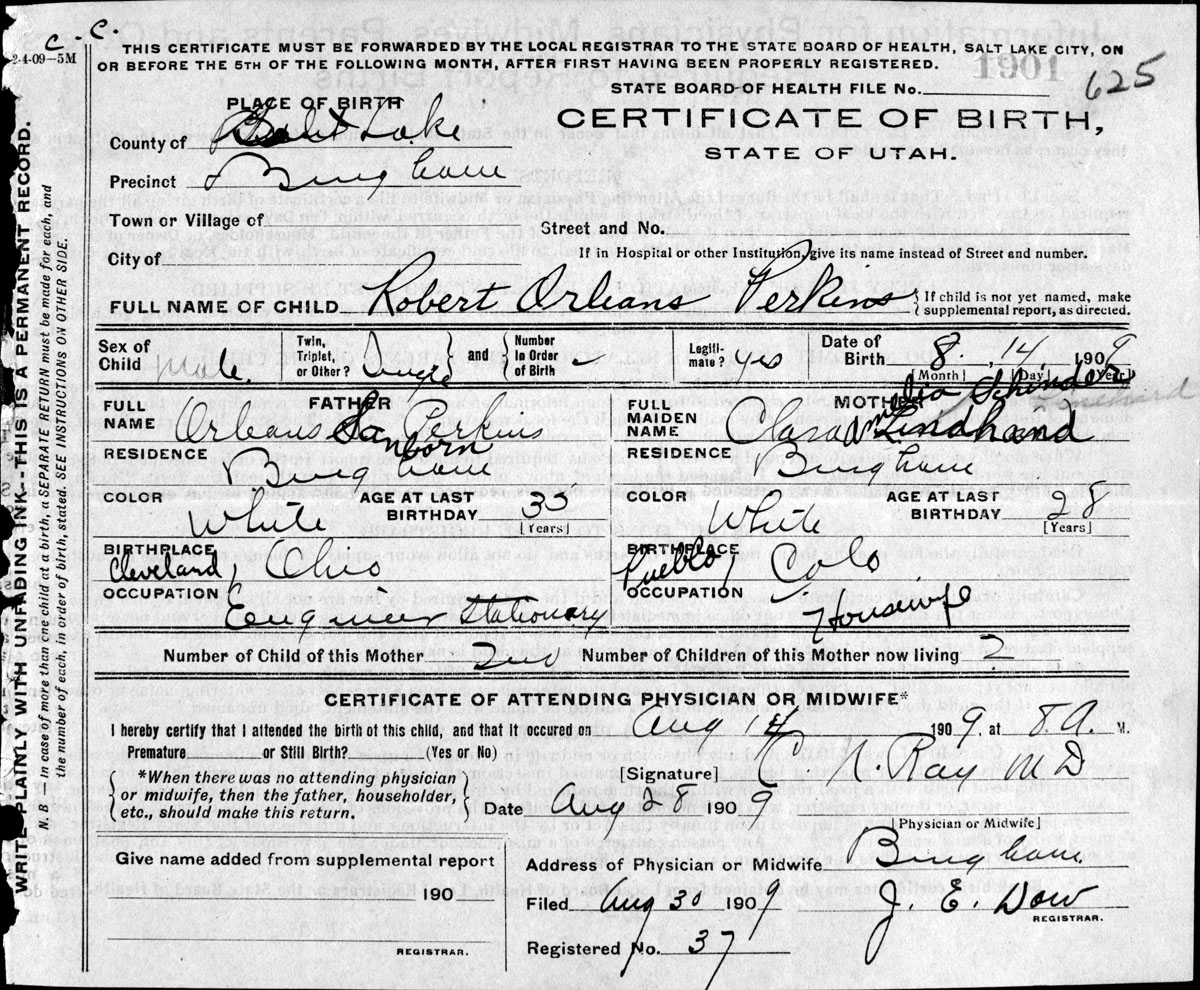 C. - C.
2-4-09-5M
THIS CERTIFICATE MUST BE FORWARDED BY THE LOCAL REGISTRAR TO THE STATE BOARD OF HEALTH, SALT LAKE CITY, ON
OR BEFORE THE 5TH OF THE FOLLOWING MONTH, AFTER FIRST HAVING BEEN PROPERLY REGISTERED.
1901
625
STATE BOARD OF HEALTH FILE No.
CERTIFICATE OF BIRTH,
STATE OF UTAH.
PLACE OF BIRTH
County of Salt Lake
Precinct Bingham
Town or Village of
Street and No.
City of
If in Hospital or other Institution, give its name instead of Street and number.
FULL NAME OF CHILD Robert Orleans Perkins { If child is not yet named, make supplemental report, as directed.
Sex of Child Male. Twin, Triplet, or Other? Single } and { Number in Order of Birth - Legitimate? yes Date of Birth 8. , 14 1909
[Month] [Day] [Year]
FATHER
FULL NAME Orleans Sanborn Perkins
RESIDENCE Bingham
COLOR White AGE AT LAST BIRTHDAY 35 [Years]
BIRTHPLACE Cleveland, Ohio
OCCUPATION Engineer Stationary
MOTHER
FULL MAIDEN NAME Clara Amelia Schinder Lindhand
RESIDENCE Bingham
COLOR White AGE AT LAST BIRTHDAY 28 [Years]
BIRTHPLACE Pueblo, Colo
OCCUPATION Housewife
Number of Child of this Mother 2nd Number of Children of this Mother now living 2
CERTIFICATE OF ATTENDING PHYSICIAN OR MIDWIFE*
I hereby certify that I attended the birth of this child, and that it occured on Aug 14 1909. at 8.A. M.
Premature or Still Birth? (Yes or No)
{ *When there was no attending physician or midwife, then the father, householder, etc., should make this return. }
[Signature] N. Ray MD
Date Aug 28 1909
[Physician or Midwife]
Give name added from supplemental report
190
REGISTRAR.
Address of Physician or Midwife Bingham
Filed Aug 30 1909 J. E. Dow
REGISTRAR.
Registered No. 37
WRITE PLAINLY WITH UNFADING INK--THIS IS A PERMANENT RECORD.
N. B. In case of more than one child at a birth, a SEPARATE RETURN must be made for each, and
the number of each, in order of birth, stated. SEE INSTRUCTIONS ON OTHER SIDE.